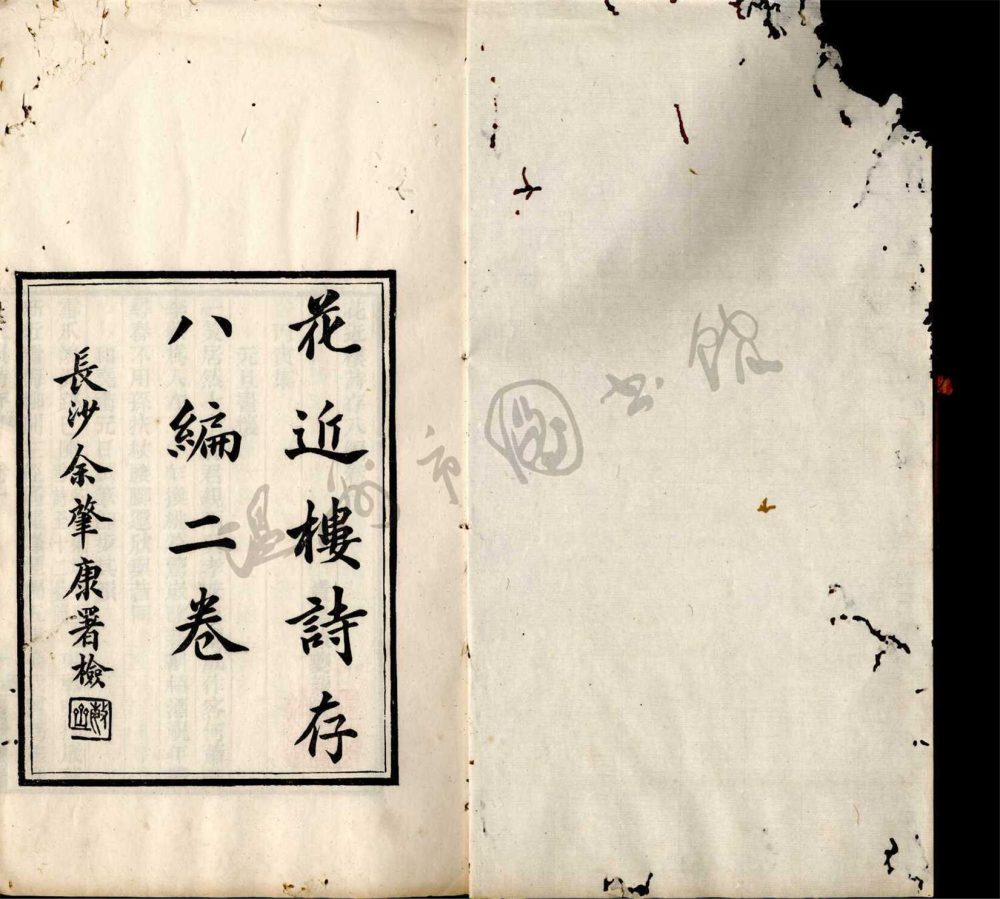 花近樓詩存
八編二卷
長沙余肇康署檢
敏
温州市圖書館